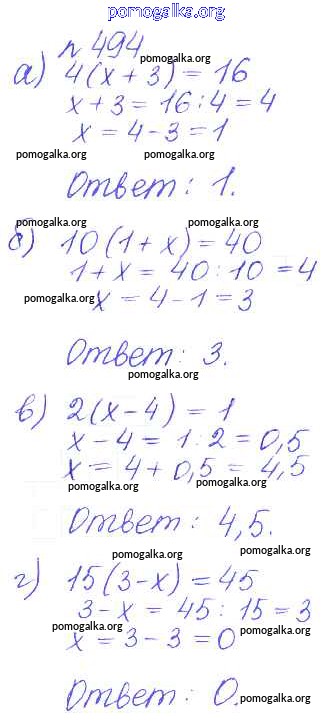 pomogalka.org
№ 494
а) 4(x + 3) = 16
pomogalka.org
x + 3 = 16 : 4 = 4
x = 4 - 3 = 1
pomogalka.org pomogalka.org
Ответ: 1.
pomogalka.org pomogalka.org
б) 10(1 + x) = 40
1 + x = 40 : 10 = 4
pomogalka.org x = 4 - 1 = 3
Ответ: 3.
pomogalka.org
в) 2(x - 4) = 1
x - 4 = 1 : 2 = 0,5
x = 4 + 0,5 = 4,5
pomogalka.org pomogalka.org
Ответ: 4,5.
pomogalka.org
г) 15(3 - x) = 45
pomogalka.org
3 - x = 45 : 15 = 3
pomogalka.org pomogalka.org
x = 3 - 3 = 0
Ответ: 0.
pomogalka.org